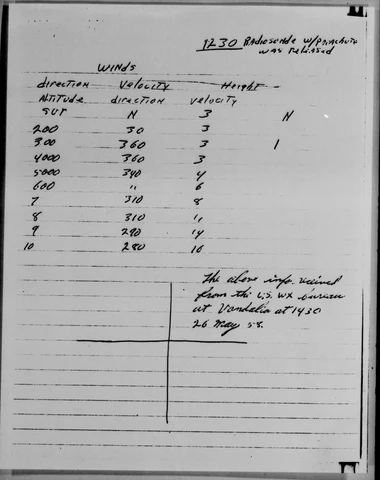 1230 Radiosonde w/parachute
was released
WINDS
direction Velocity Height
Altitude direction Velocity
SUR N 3 N
200 30 3
300 360 3 1
4000 360 3
5000 340 4
600 " 6
7 310 8
8 310 "
9 290 14
10 280 16
the above info recived
from the U.S. WX bureau
at Vandalia at 1430
26 May 58.